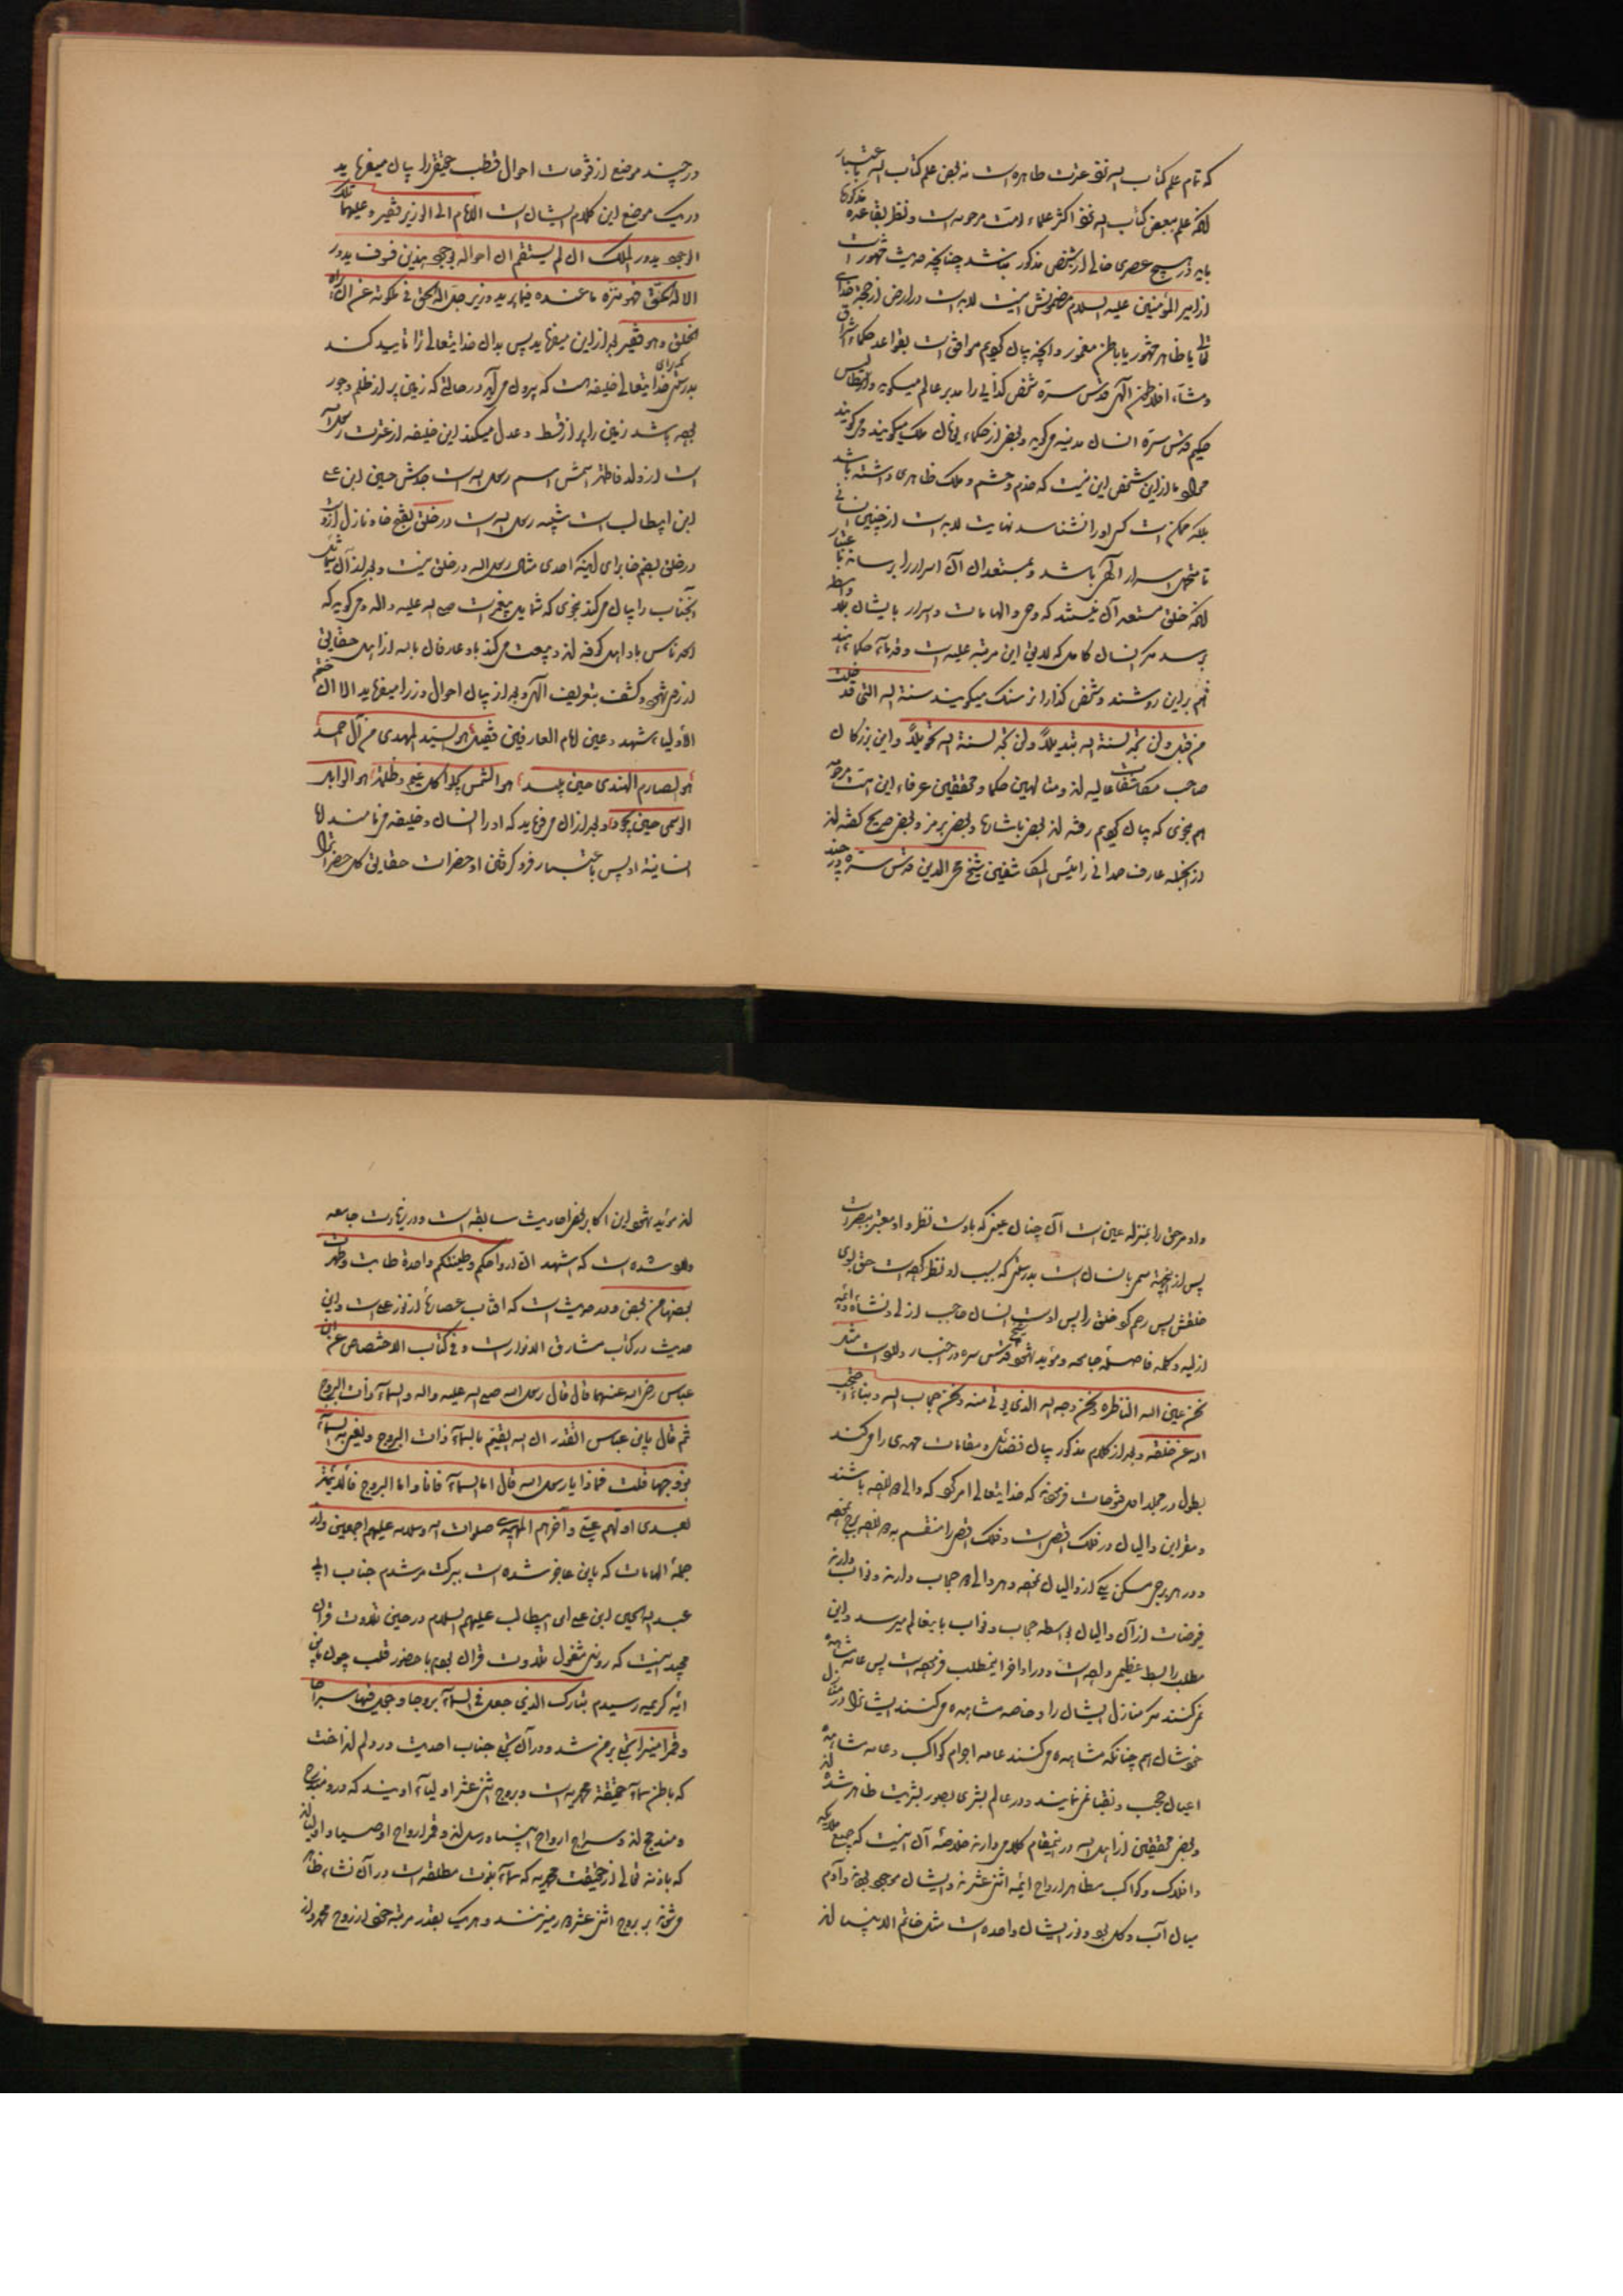 که تمام علم کتاب الله نزد عترت طاهره است نه بعض علم کتاب الله باعتبار
آنکه علم ببعض کتاب الله نزد اکثر علماء امت مرحومه است و نظر بقاعده مذکوره
باید در هیچ عصری خالی از شخص مذکور نباشد چنانچه حدیث مشهور است
از امیر المؤمنین علیه السلام مضمونش اینست لابد است در ارض از حجة خدای
تعالی یا ظاهر مشهور یا باطن مغمور و آنچه بیان کردیم موافق است بقواعد حکماء اشراق
و مشاء افلاطون الهی قدس سره شخص کذایی را مدبر عالم میگوید و ارسطاطالیس
حکیم قدس سره انسان مدینه میگوید و بعض از حکماء یونان ملک میگویند و میگویند
مراد ما از این شخص این نیست که خدم و حشم و ملک ظاهری داشته باشد
بلکه ممکن است کسی او را نشناسد نهایت لابد است از چنین انسانی
تا متحمل اسرار الهی باشد و بمستعدان آن اسرار را برساند باعتبار
آنکه خلق مستعد آن نیستند که وحی و الهامات و اسرار بایشان بلا واسطه
برسد مگر انسان کامل که لایق این مرتبه علیه است و قدماء حکماء هند
هم بر این روشند و شخص کذا را نر سنک میگویند سنة الله التی قد خلت
من قبل ولن تجد لسنة الله تبدیلاً ولن تجد لسنة الله تحویلاً و این بزرگان
صاحب مکاشفات عالیه اند و متالهین حکما و محققین عرفاء این امت مرحومه
هم بنحوی که بیان کردیم رفته اند بعض باشارها و بعض برمز و بعض صریح گفته اند
از آنجمله عارف صمدانی رائیس المکاشفین شیخ محی الدین قدس سره در چند
در چند موضع از فتوحات احوال قطب حقیقی را بیان میفرماید
در یک موضع این کلام ایشان است الامام الی الوزیر فقیر و علیهما فلک
الوجود یدور الملک ان لم یستقم ان احواله بوجود هذین فسوف یدور
الا الاله الحق فهو منزه ما عنده فیما یرید وزیر جل الاله الحق فی ملکوته عن ان یراه
الخلق و هو فقیر بعد از این میفرماید پس بدان خدایتعالی ترا تایید کند
بدرستی که برای خدایتعالی خلیفه است که بیرون می آید در حالتی که زمین پر از ظلم و جور
بوده باشد زمین را پر از قسط و عدل میکند این خلیفه از عترت رسول الله
است از ولد فاطمه اسمش اسم رسول الله است جدش حسین ابن علی
ابن ابیطالب است شبیه رسول الله است در خلق بفتح خا و نازل از اوست
در خلق بضم خا برای اینکه احدی مثل رسول الله در خلق نیست و بعد از آن شمایل
آنجناب را بیان میکند بنحوی که شمایل پیغمبر است صلی الله علیه واله و میگوید که
اسعد ناس باو اهل کوفه اند و بیعت میکنند باو عارفان بالله از اهل حقایق
از روی شهود و کشف بتعریف الهی و بعد از بیان احوال وزرا میفرماید الا ان ختم
الأولیاء شهید و عین امام العارفین فقید هو السید المهدی من آل احمد
هو الصارم الهندی حین یبید هو الشمس یجلو کل غیم و ظلمة هو الوابل
الوسمی حین یجود و بعد از آن میفرماید که او را انسان و خلیفه مینامند اما
انسانیة او پس باعتبار فرو گرفتن او حضرات حقایق کل حضرات را
و او مر حق را بمنزله عین است آن چنان عینی که باوست نظر و او معتبر ببصر است
پس از اینجهة مسمی بانسان است بدرستی که بسبب او نظر کرده است حق بسوی
خلقش پس رحم کرد خلق را پس اوست انسان حادث ازلی و نشاه دائمه
ازلیه و کلمه فاصله جامعه و مؤید شهود شیخ قدس سره در اخبار وارد است مثل
نحن عین الله الناظرة و نحن وجه الله الذی یؤتی منه و نحن حجاب الله و بناء احتجب
الله عن خلقه و بعد از کلام مذکور بیان فضائل و مقامات مهدی را میکند
بطول در جلد اول فتوحات فرموده که خدایتعالی امر کرد که والی دوازده باشند
و مقر این والیان در فلک اقصی است و فلک اقصی را منقسم به دوازده برج نموده
و در هر برج مسکن یکی از والیان نموده و هر والی دو حجاب دارند و نواب دارند
فیوضات از آن والیان بواسطه حجاب و نواب باینعالم میرسد و این
مطلب را بسط عظیمی داده است و در اواخر اینمطلب فرموده است پس عامه مشاهده
نمیکنند مگر منازل ایشان را و خاصه مشاهده میکنند ایشانرا در منازل
خودشان هم چنانکه مشاهده میکنند عامه اجرام کواکب و عامه مشاهده
اعیان حجب و نقبا نمینمایند و در عالم بشری بصور بشریت ظاهر شده اند
و بعض محققین از اهل الله در اینمقام کلامی دارند خلاصه آن اینست که جمیع ملائکه
و افلاک و کواکب مظاهر ارواح ائمه اثنی عشرند و ایشان موجود بودند و آدم
میان آب و گل بود و نور ایشان واحده است مثل خاتم الانبیاء اند
اند مؤید شهود این اکابر بعض احادیث سابقه است و در زیارت جامعه
وارد شده است که اشهد ان ارواحکم و طینتکم واحدة طابت و طهرت
بعضها من بعض و در حدیث است که آفتاب عصارها از نور علی است و این
حدیث در کتاب مشارق الانوار است و فی کتاب الاختصاص عن ابن
عباس رضی الله عنهما قال قال رسول الله صلی الله علیه واله والسماء ذات البروج
ثم قال یابن عباس اتقدر ان الله یقسم بالسماء ذات البروج و یعنی به السماء
و بروجها قلت فماذا یا رسول الله قال اما السماء فانا و اما البروج فالائمة
بعدی اولهم علی و آخرهم المهدی صلوات الله وسلامه علیهم اجمعین و از
جمله الهامات که باین عاجز شده است ببرکت مرشدم جناب ابی
عبد الله الحسین ابن علی ابن ابیطالب علیهم السلام در حین تلاوت قران
مجید اینست که روزی مشغول تلاوت قران بودم با حضور قلب چون باین
ایه کریمه رسیدم تبارک الذی جعل فی السماء بروجا و جعل فیها سراجا
و قمرا منیرا تجلی بر من شد و در آن تجلی جناب احدیت در دلم انداخت
که باطن سماء حقیقة محمدیه است و بروج اثنی عشر اولیاء اویند که در او مندرج
و مندمج اند و سراج ارواح انبیاء و رسل اند و قمر ارواح اوصیا و اولیا اند
که باذنه تعالی از حقیقت محمدیه که سماء نبوت مطلقه است در آن نشاء ظاهر
میشوند بر بروج اثنی عشر دور میزنند و هر یک بقدر مرتبه خود از روح محمد و از